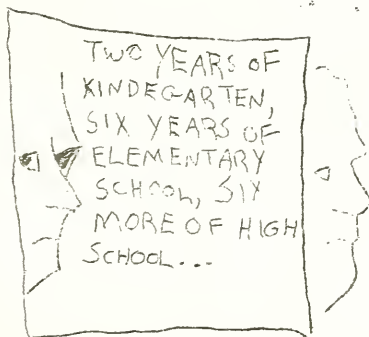 TWO YEARS OF
KINDEGARTEN,
SIX YEARS OF
ELEMENTARY
SCHOOL, SIX
MORE OF HIGH
SCHOOL...